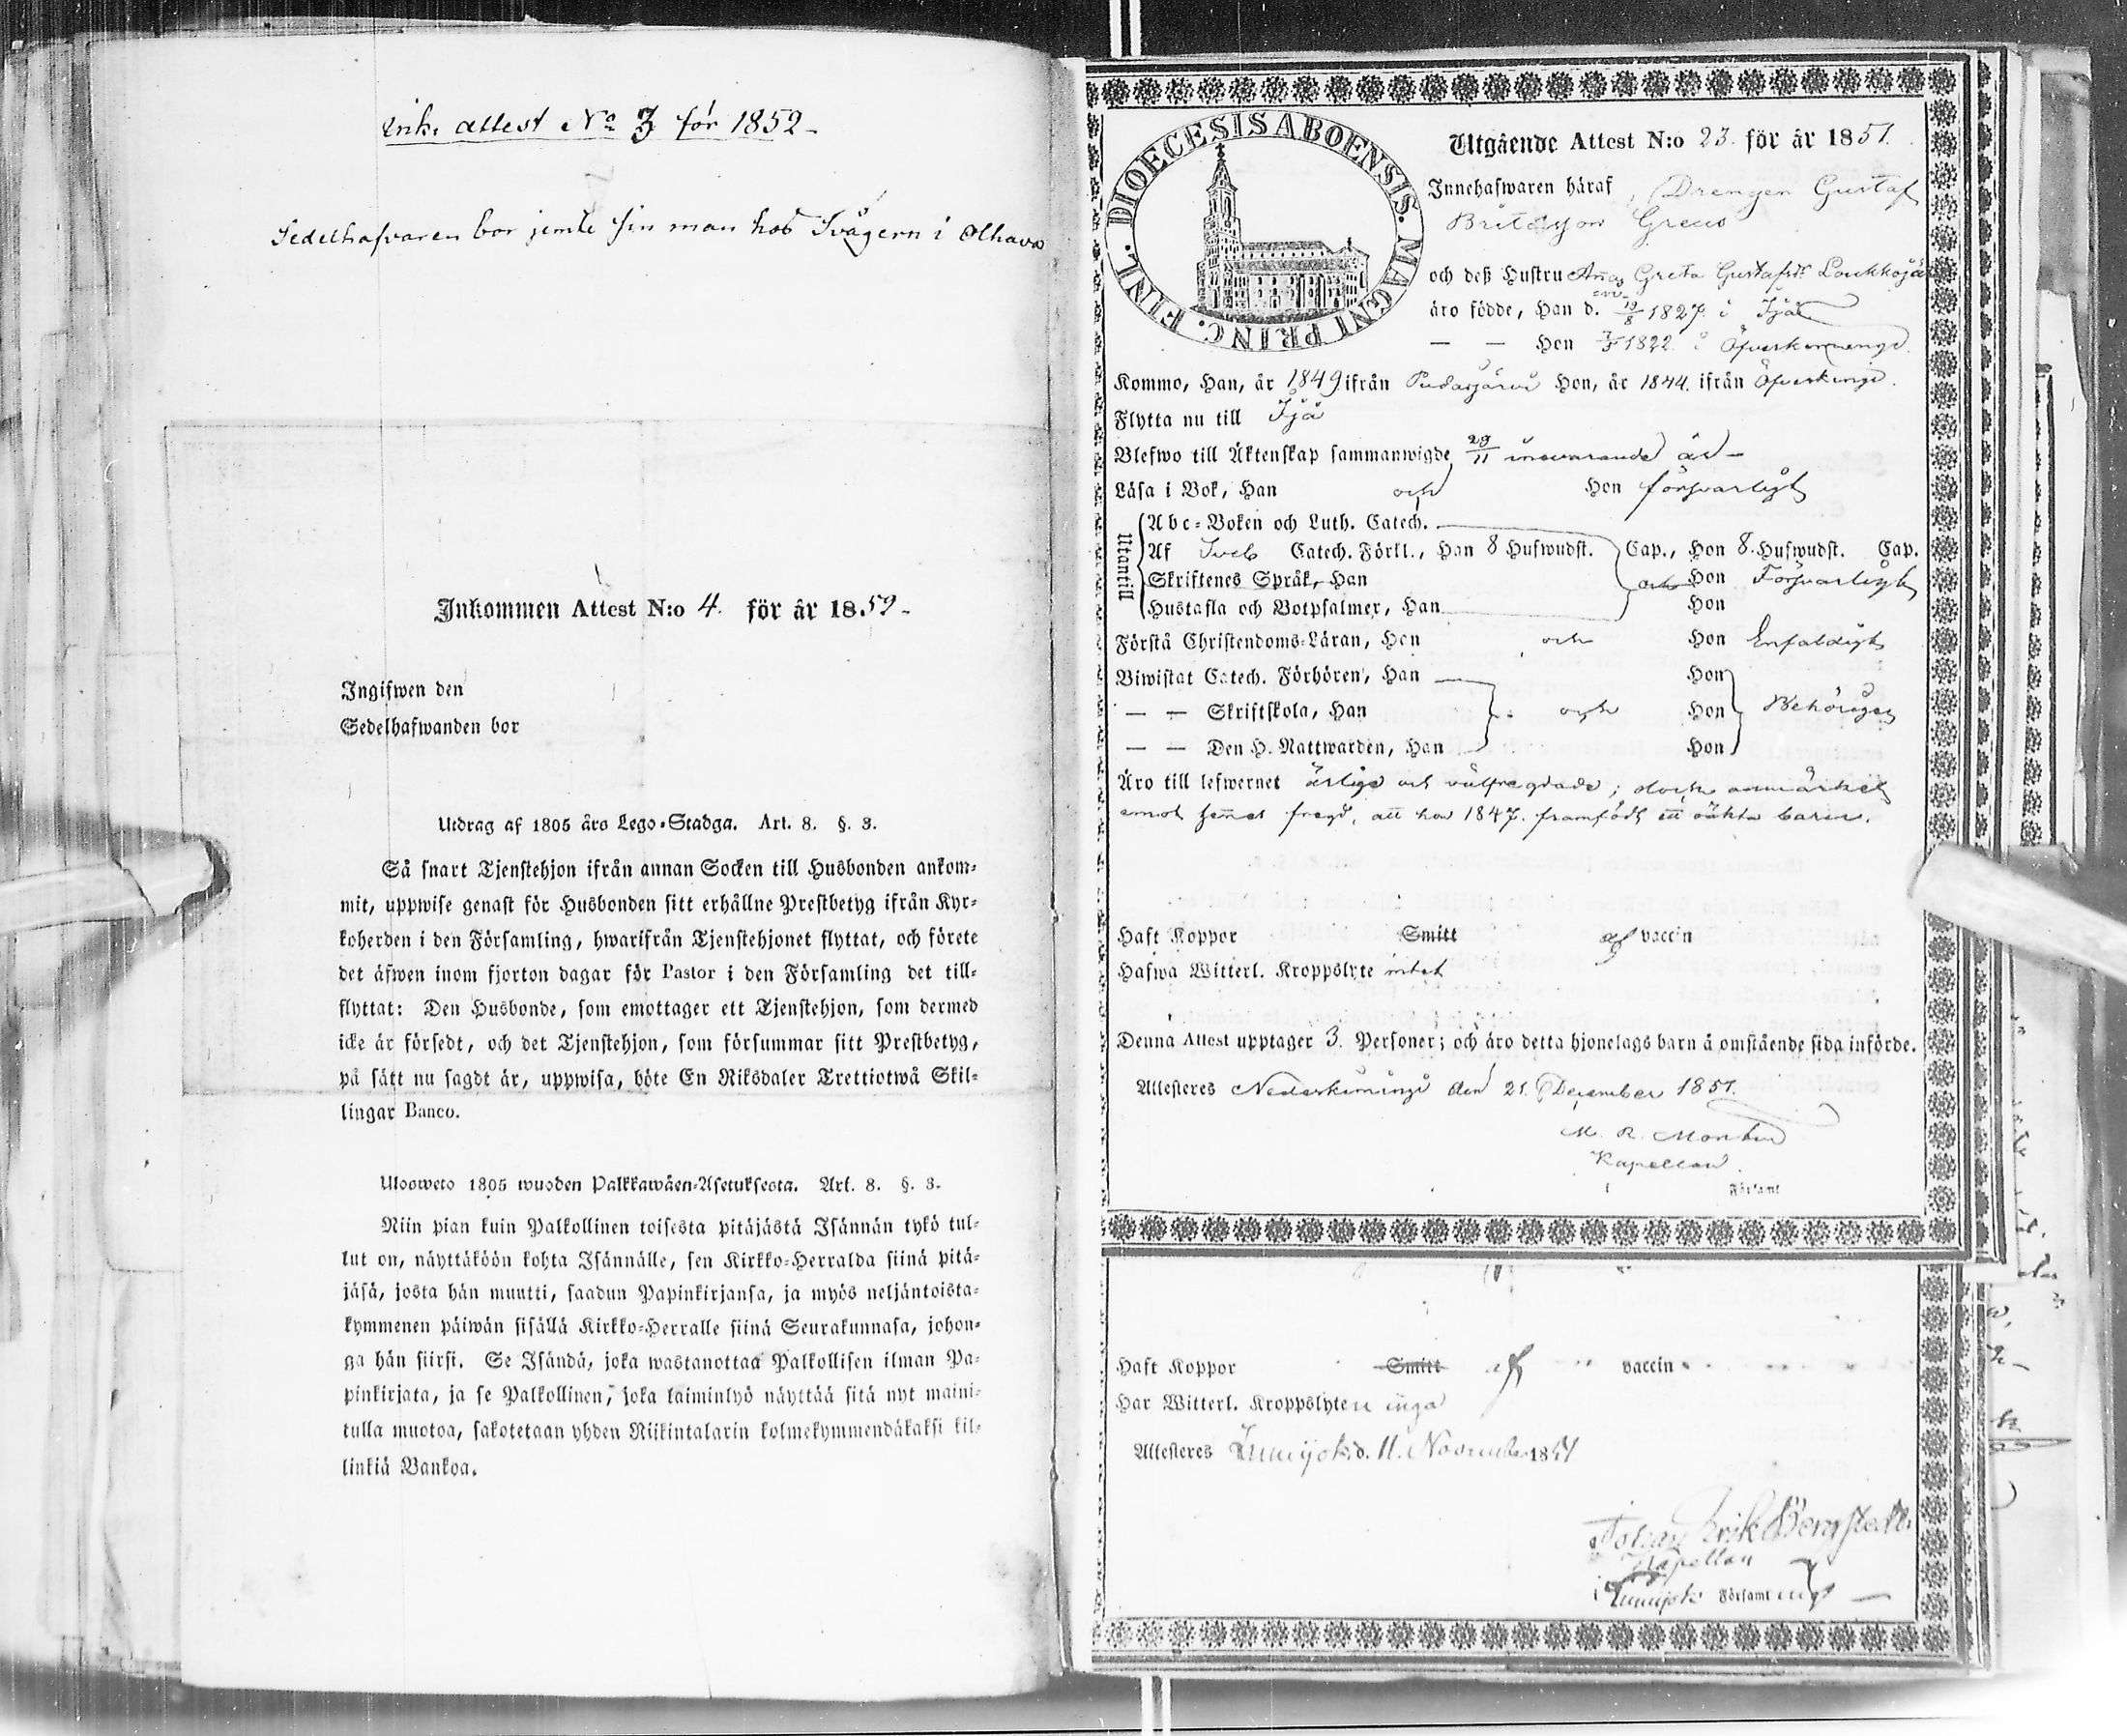 Ink. attest No 3 för 1852
Sedelhafvaren bor jemte sin man hos Svågern i Olhava
Inkommen Attest N:o 4. för år 1852
Ingifwen den
Sedelhafwanden bor
Utdrag af 1805 års Lego-Stadga. Art. 8. §. 3.
Så snart Tjenstehjon ifrån annan Socken till Husbonden ankom-
mit, uppwise genast för Husbonden sitt erhållne Prestbetyg ifrån Kyr-
koherden i den Församling, hwarifrån Tjenstehjonet flyttat, och förete
det äfwen inom fjorton dagar för Pastor i den Församling det till-
flyttat: Den Husbonde, som emottager ett Tjenstehjon, som dermed
icke är försedt, och det Tjenstehjon, som försummar sitt Prestbetyg,
på sätt nu sagdt är, uppwisa, böte En Riksdaler Trettiotwå Skil-
lingar Banco.
Ulosweto 1805 wuoden Palkkawäen-Asetuksesta. Art. 8. §. 3.
Niin pian kuin Palkollinen toisesta pitäjästä Isännän tykö tul-
lut on, näyttäköön kohta Isännälle, sen Kirkko-Herralda siinä pitä-
jäsä, josta hän muutti, saadun Papinkirjansa, ja myös neljäntoista-
kymmenen päiwän sisällä Kirkko-Herralle siinä Seurakunnasa, johon-
ga hän siirsi. Se Isändä, joka wastanottaa Palkollisen ilman Pa-
pinkirjata, ja se Palkollinen, joka laiminlyö näyttää sitä nyt maini-
tulla muotoa, sakotetaan yhden Riikintalarin kolmekymmendäkaksi kil-
linkiä Bankoa.
DIOECESIS ABOENSIS. MAGNI PRINC. FINL.
Utgående Attest N:o 23. för år 1851.
Innehafwaren häraf, Drengen Gustaf
Britasson Greus
och deß Hustru Anna Greta Gustafsdr Loukkoja
äro födde, Han d. 19/8 1827. i Ijo
— — Hon 7/5 1822 i Öfverkiminge
Kommo, Han, år 1849 ifrån Pudasjärvi Hon, år 1844. ifrån Öfverkimge.
Flytta nu till Ijo
Blefwo till Äktenskap sammanwigde 29/11 innevarande år
Läsa i Bok, Han och Hon försvarligt
Utantill
Abc-Boken och Luth. Catech.
Af Sveb Catech. Förkl., Han 8 Hufwudst. Cap., Hon 8. Hufwudst. Cap.
Skriftenes Språk, Han och Hon Försvarligt
Hustafla och Botpsalmer, Han Hon
Förstå Christendoms-Läran, Han och Hon Enfaldigt
Biwistat Catech. Förhören, Han Hon
— — Skriftskola, Han och Hon Behörigen
— — Den H. Nattwarden, Han Hon
Äro till lefwernet ärlige och välfregdade; dock anmärkes
emot hennes fregd, att hon 1847. framfödt ett oäkta barn.
Haft Koppor Smitt af vaccin
Hafwa Witterl. Kroppslyte intet
Denna Attest upptager 3. Personer; och äro detta hjonelags barn å omstående sida införde.
Attesteres Nederkiminge den 21. December 1851.
M. R.
Kapellan.
Församl
Haft Koppor Smitt af vaccin
Har Witterl. Kroppslyten inga
Attesteres Lumijoki d. 11. November 1851
Johan Erik Bergstedt
Kapellan
i Lumijoki Församling